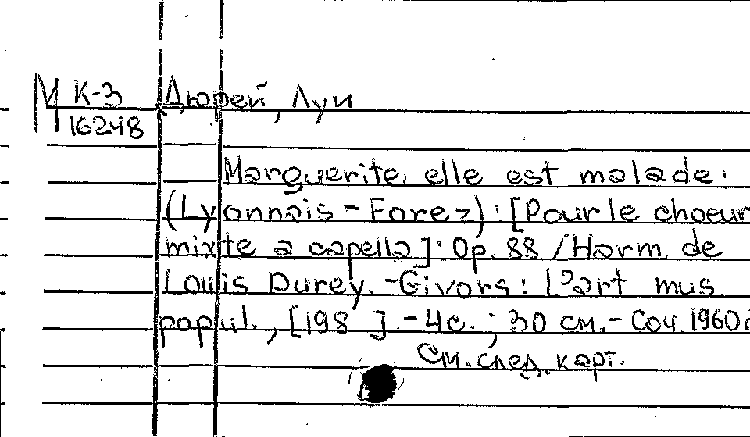 М К-3 Дюрей, Луи
16248
Marguerite, elle est malade:
(Lyonnais-Forez): [Pour le choeur
mixte a capella]: Op. 88 / Harm. de
Louis Durey. - Givors: L'art mus
popul., [198 ]. - 4 с.; 30 см. - Соч. 1960
См. след. карт.